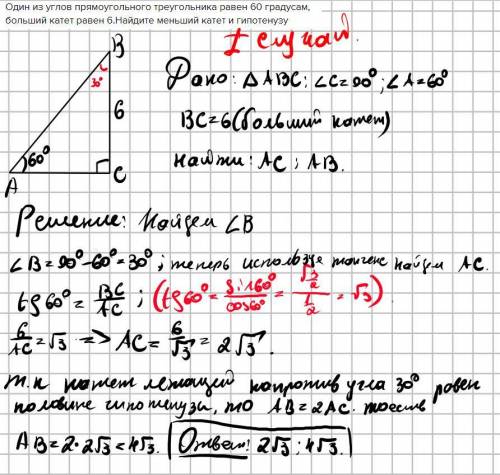 Один из углов прямоугольного треугольника равен 60 градусам,
больший катет равен 6.Найдите меньший катет и гипотенузу
I случай.
B
30°
6
60°
A
C
Дано: △ABC; ∠C=90°; ∠A=60°
BC=6(больший катет)
Найти: AC; AB.
Решение: Найдем ∠B
∠B=90°-60°=30°; теперь используя тангенс найдем AC.
tg60°=BC/AC; (tg60°=sin60°/cos60°=√3/2/1/2=√3)
6/AC=√3 => AC=6/√3=2√3.
т.к катет лежащий напротив угла 30° равен
половине гипотенузы, то AB=2AC. тоесть
AB=2·2√3=4√3. Ответ: 2√3; 4√3.